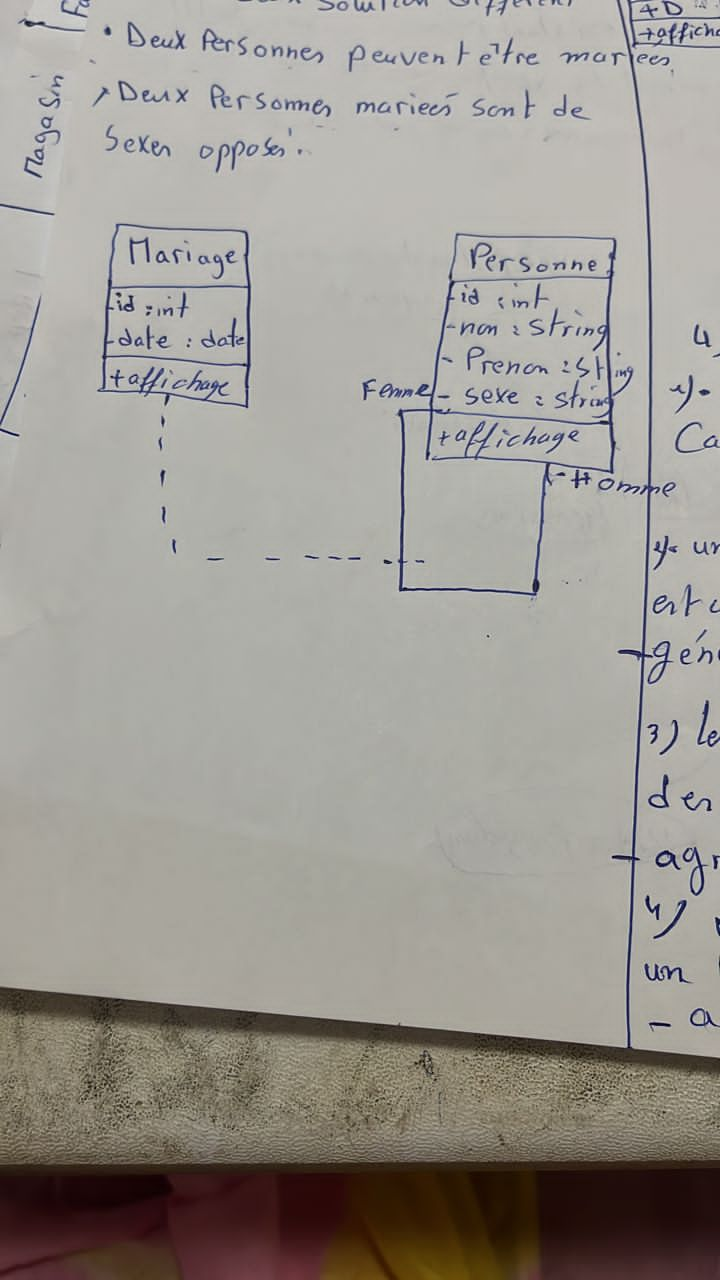 Solution Différent
• Deux Personnes peuvent être mariées
Deux Personnes mariées sont de
Sexes opposés.
Magasin
+affich
Mariage
-id : int
-date : date
+affichage
Personne
-id : int
-nom : String
- Prenom : String
- sexe : string
+affichage
Femme
Homme
4
Ca
un
est
gén
3) le
des
- agr
4)
un
- a